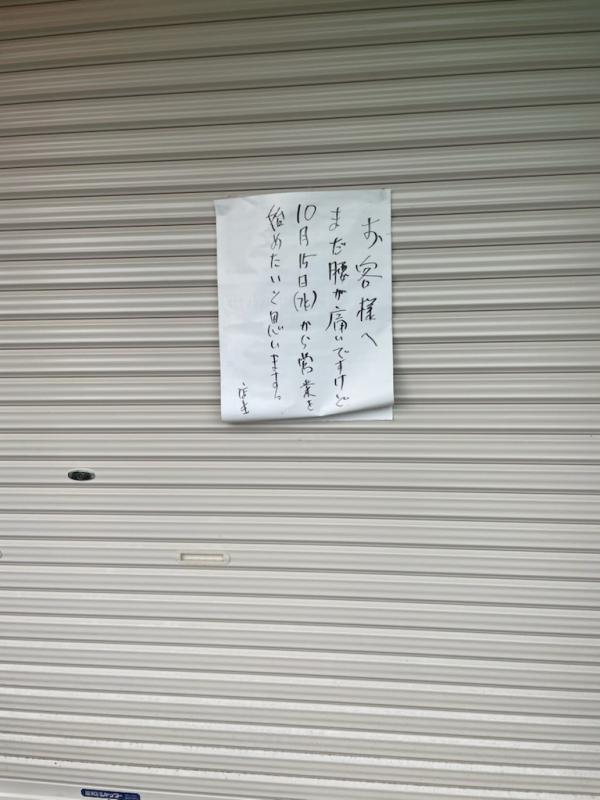 お客様へ
まだ腰が痛いですけど
10月15日(水)から営業を
始めたいと思います。
店主